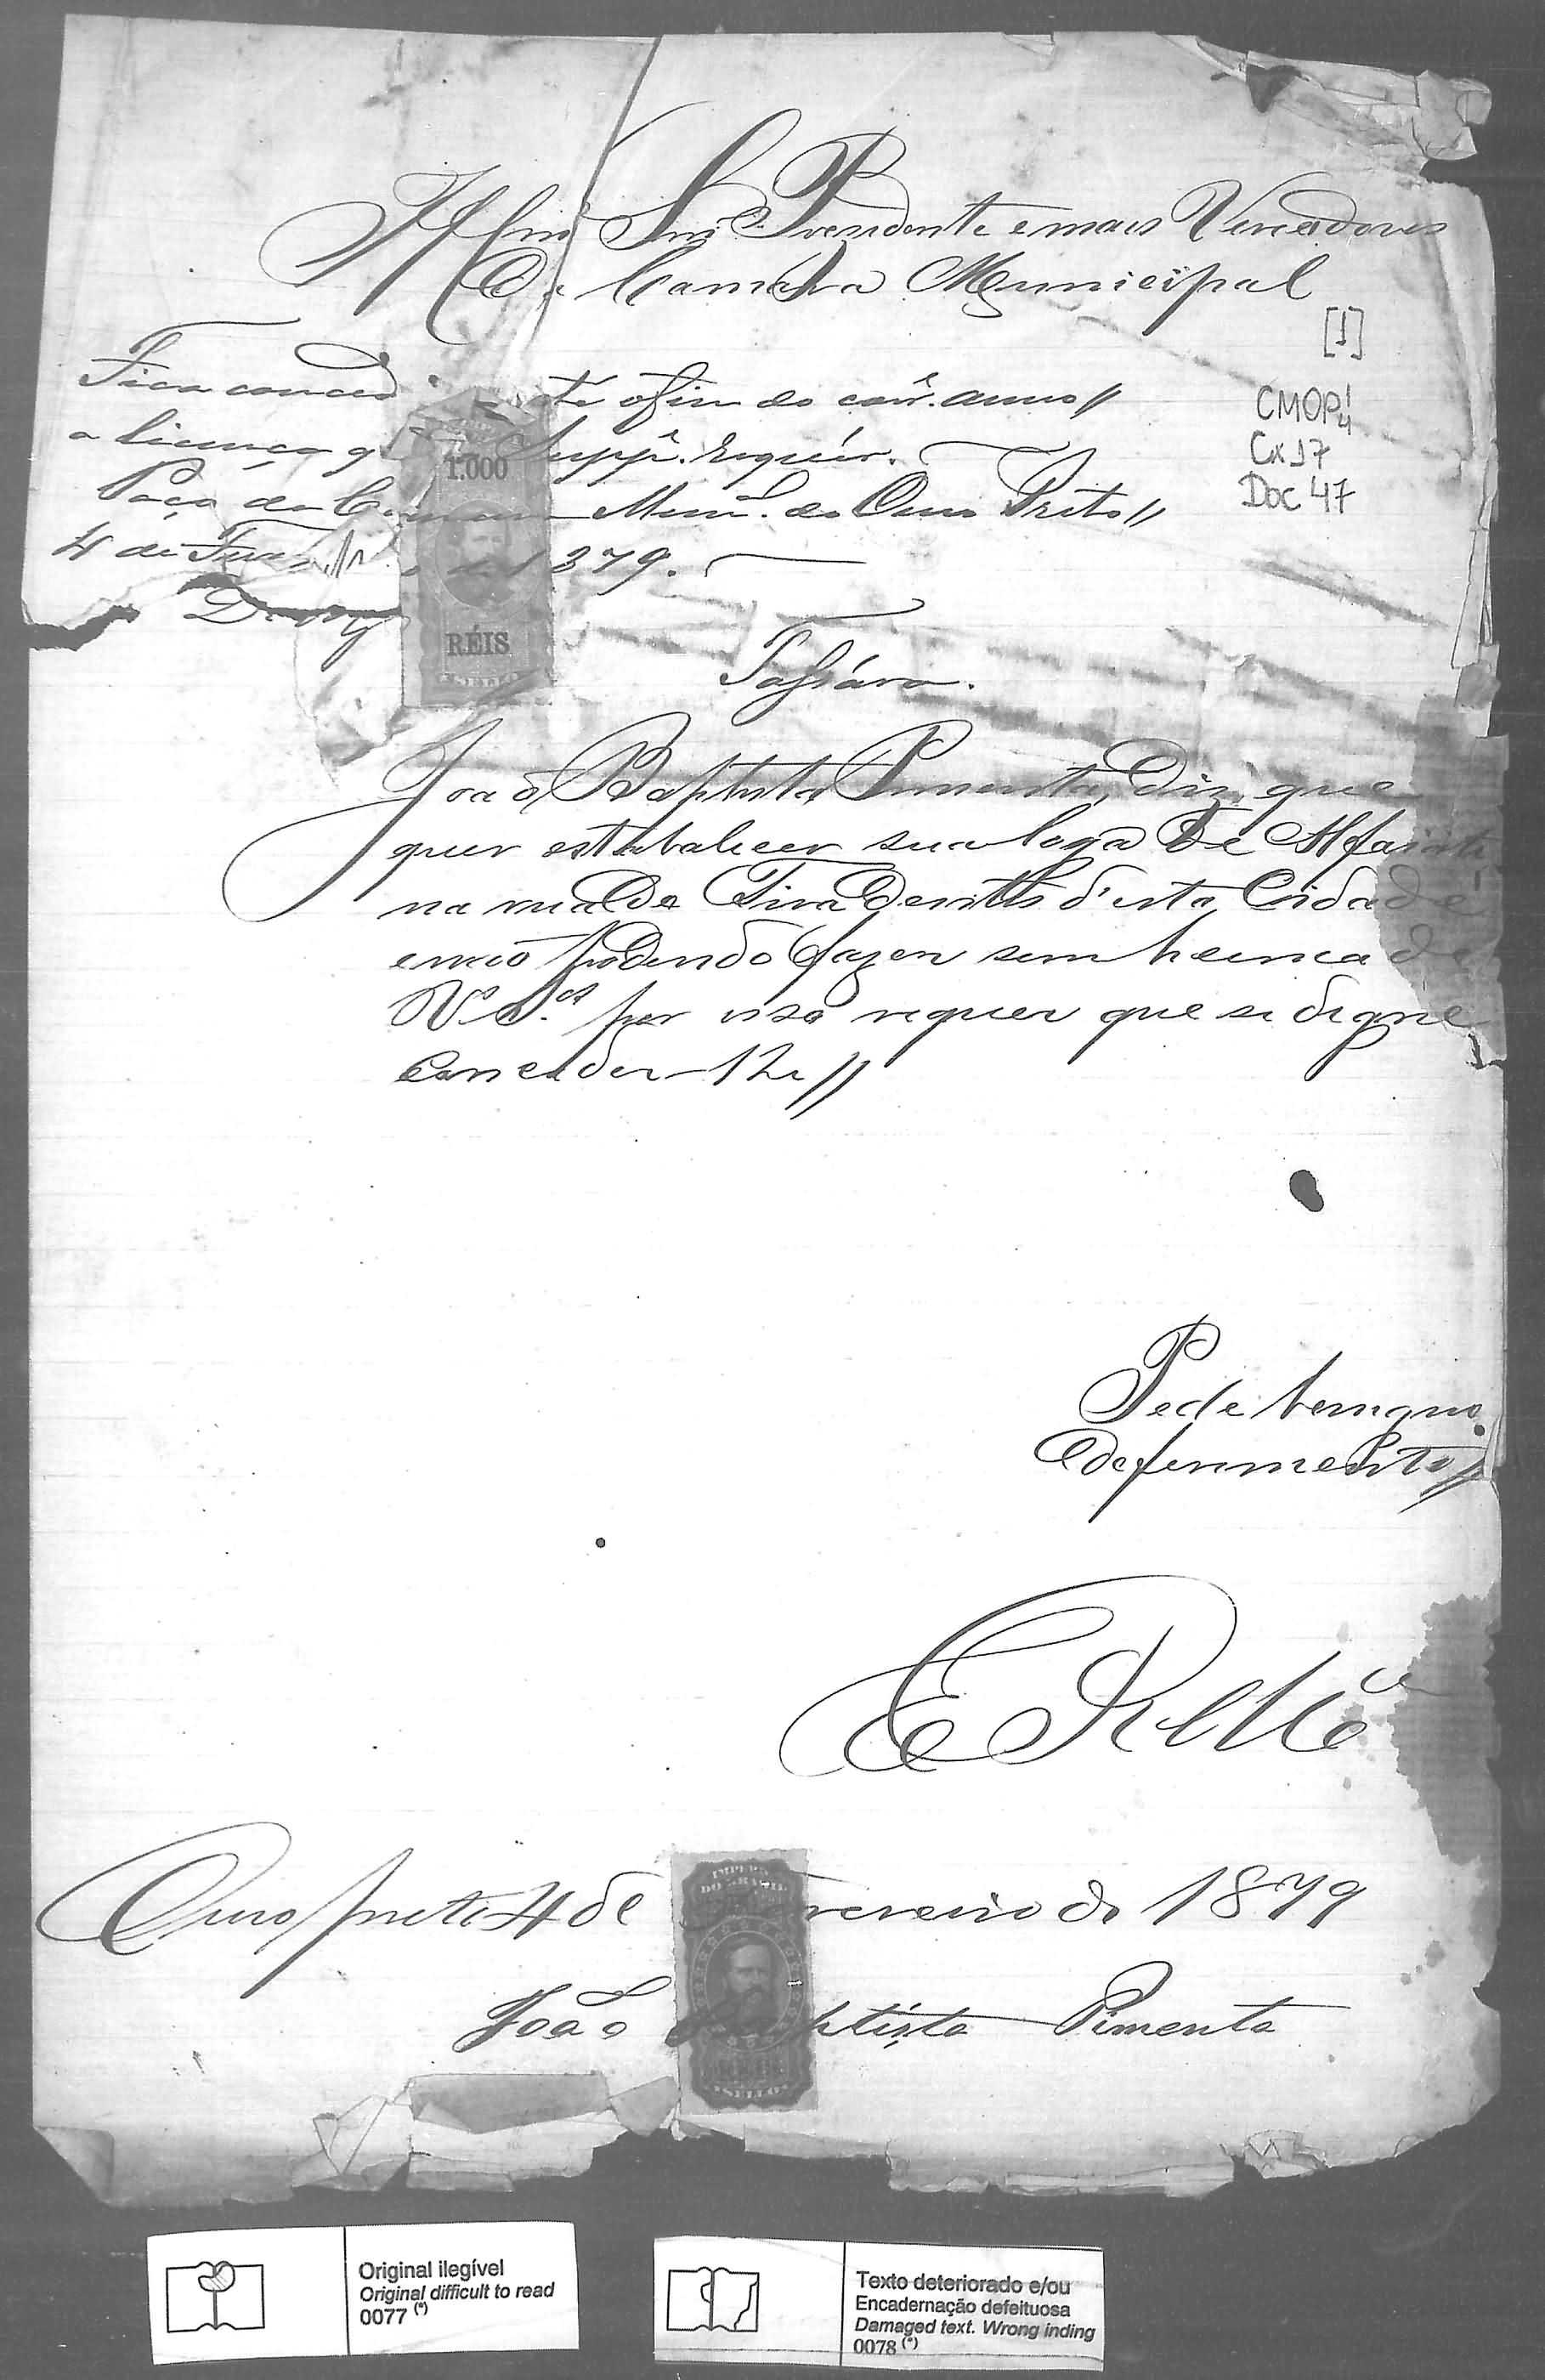 Illmo Snr Presidente e mais Vereadores
Da Camara Municipal
[1]
CMOP
Cx 17
Doc 47
Fica conced até o fim do corr. anno //
a licença q Suppe. requér.
Paço da Camara Munal. do Ouro Preto //
4 de 1879.
1.000
RÉIS
SELLO
João Baptista Pimenta, Diz, que
quer estabalecer sua loga de Alfaiate
na rua De Tira Dentes d'esta Cidade
e não podendo fazer sem licenca de
V. S.as por isso requer que se digne
Conceder-lhe //
Pede benigno
deferimento //
E R Mce
Ouro preto 4 de Fevereiro de 1879
IMPERIO
DO BRAZIL
João Baptista Pimenta
SELLO
Original ilegível
Original difficult to read
0077 (*)
Texto deteriorado e/ou
Encadernação defeituosa
Damaged text. Wrong inding
0078 (*)